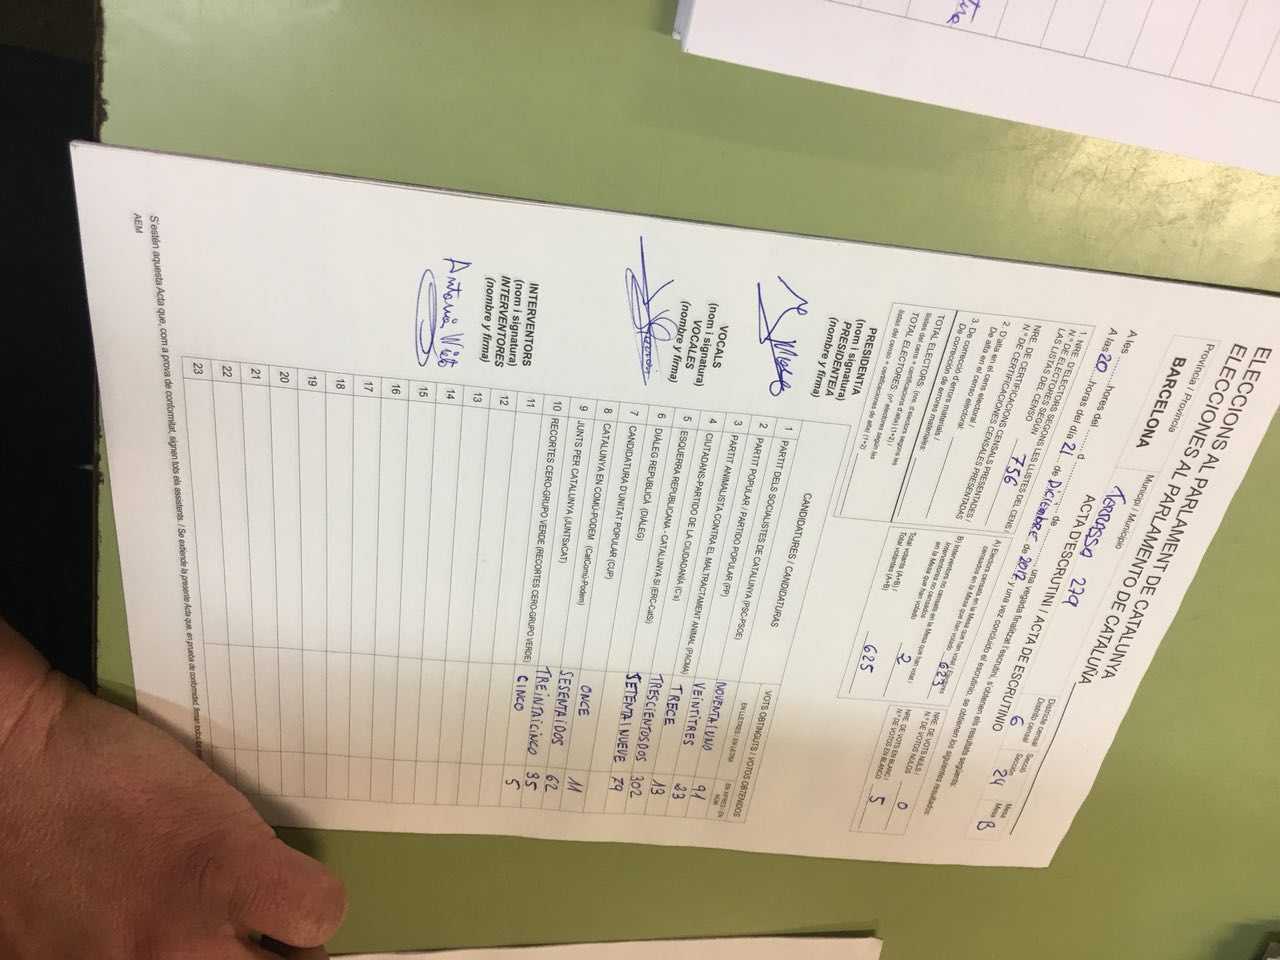 ELECCIONS AL PARLAMENT DE CATALUNYA
ELECCIONES AL PARLAMENTO DE CATALUÑA
Província / Provincia
BARCELONA
Municipi / Municipio
279
Districte censal
Distrito censal
6
Secció
Sección
24
Mesa
Mesa
B
ACTA D'ESCRUTINI / ACTA DE ESCRUTINIO
A les ........ hores del ........ d ........ de ........ una vegada finalitzat l'escrutini, s'obtenen els resultats següents:
A las 20 horas del día 21 de Diciembre de ........ y una vez concluido el escrutinio, se obtienen los siguientes resultados:
1. NRE D'ELECTORS SEGONS LES LLISTES DEL CENS /
N.º DE ELECTORES SEGÚN
LAS LISTAS DEL CENSO
756
NRE DE CERTIFICACIONS CENSALS PRESENTADES /
N.º DE CERTIFICACIONES CENSALES PRESENTADAS
2. D'alta en el cens electoral /
De alta en el censo electoral:
3. De correcció d'errors materials /
De corrección de errores materiales:
TOTAL ELECTORS: (nre. d'electors segons les
llistes del cens + certificacions d'alta) (1+2) /
TOTAL ELECTORES: (nº electores según las
listas del censo + certificaciones de alta) (1+2)
A) Electors censats en la Mesa que han votat / Electores
censados en la Mesa que han votado
623
B) Interventors no censats en la Mesa que han votat /
Interventores no censados
en la Mesa que han votado
2
Total votants (A+B) /
Total votantes (A+B)
625
NRE DE VOTS NULS /
N.º DE VOTOS NULOS
0
NRE DE VOTS EN BLANC /
N.º DE VOTOS EN BLANCO
5
PRESIDENT/A
(nom i signatura)
PRESIDENTE/A
(nombre y firma)
VOCALS
(nom i signatura)
VOCALES
(nombre y firma)
INTERVENTORS
(nom i signatura)
INTERVENTORES
(nombre y firma)
CANDIDATURES / CANDIDATURAS
VOTS OBTINGUTS / VOTOS OBTENIDOS
EN LLETRES / EN LETRA
EN XIFRES / EN NÚM
1 PARTIT DELS SOCIALISTES DE CATALUNYA (PSC-PSOE) NOVENTAIUNO 91
2 PARTIT POPULAR / PARTIDO POPULAR (PP) VEINTITRES 23
3 PARTIT ANIMALISTA CONTRA EL MALTRACTAMENT ANIMAL (PACMA) TRECE 13
4 CIUTADANS-PARTIDO DE LA CIUDADANÍA (C's) TRESCIENTOSDOS 302
5 ESQUERRA REPUBLICANA - CATALUNYA SÍ (ERC-CatSí) SETENTAINUEVE 79
6 DIÀLEG REPUBLICÀ (DIÀLEG)
7 CANDIDATURA D'UNITAT POPULAR (CUP) ONCE 11
8 CATALUNYA EN COMÚ-PODEM (CatComú-Podem) SESENTAIDOS 62
9 JUNTS PER CATALUNYA (JUNTSxCAT) TREINTAICINCO 35
10 RECORTES CERO-GRUPO VERDE (RECORTES CERO-GRUPO VERDE) CINCO 5
11
12
13
14
15
16
17
18
19
20
21
22
23
S'estén aquesta Acta que, com a prova de conformitat, signen tots els assistents. / Se extiende la presente Acta que, en prueba de conformidad, firman todos los
AEM